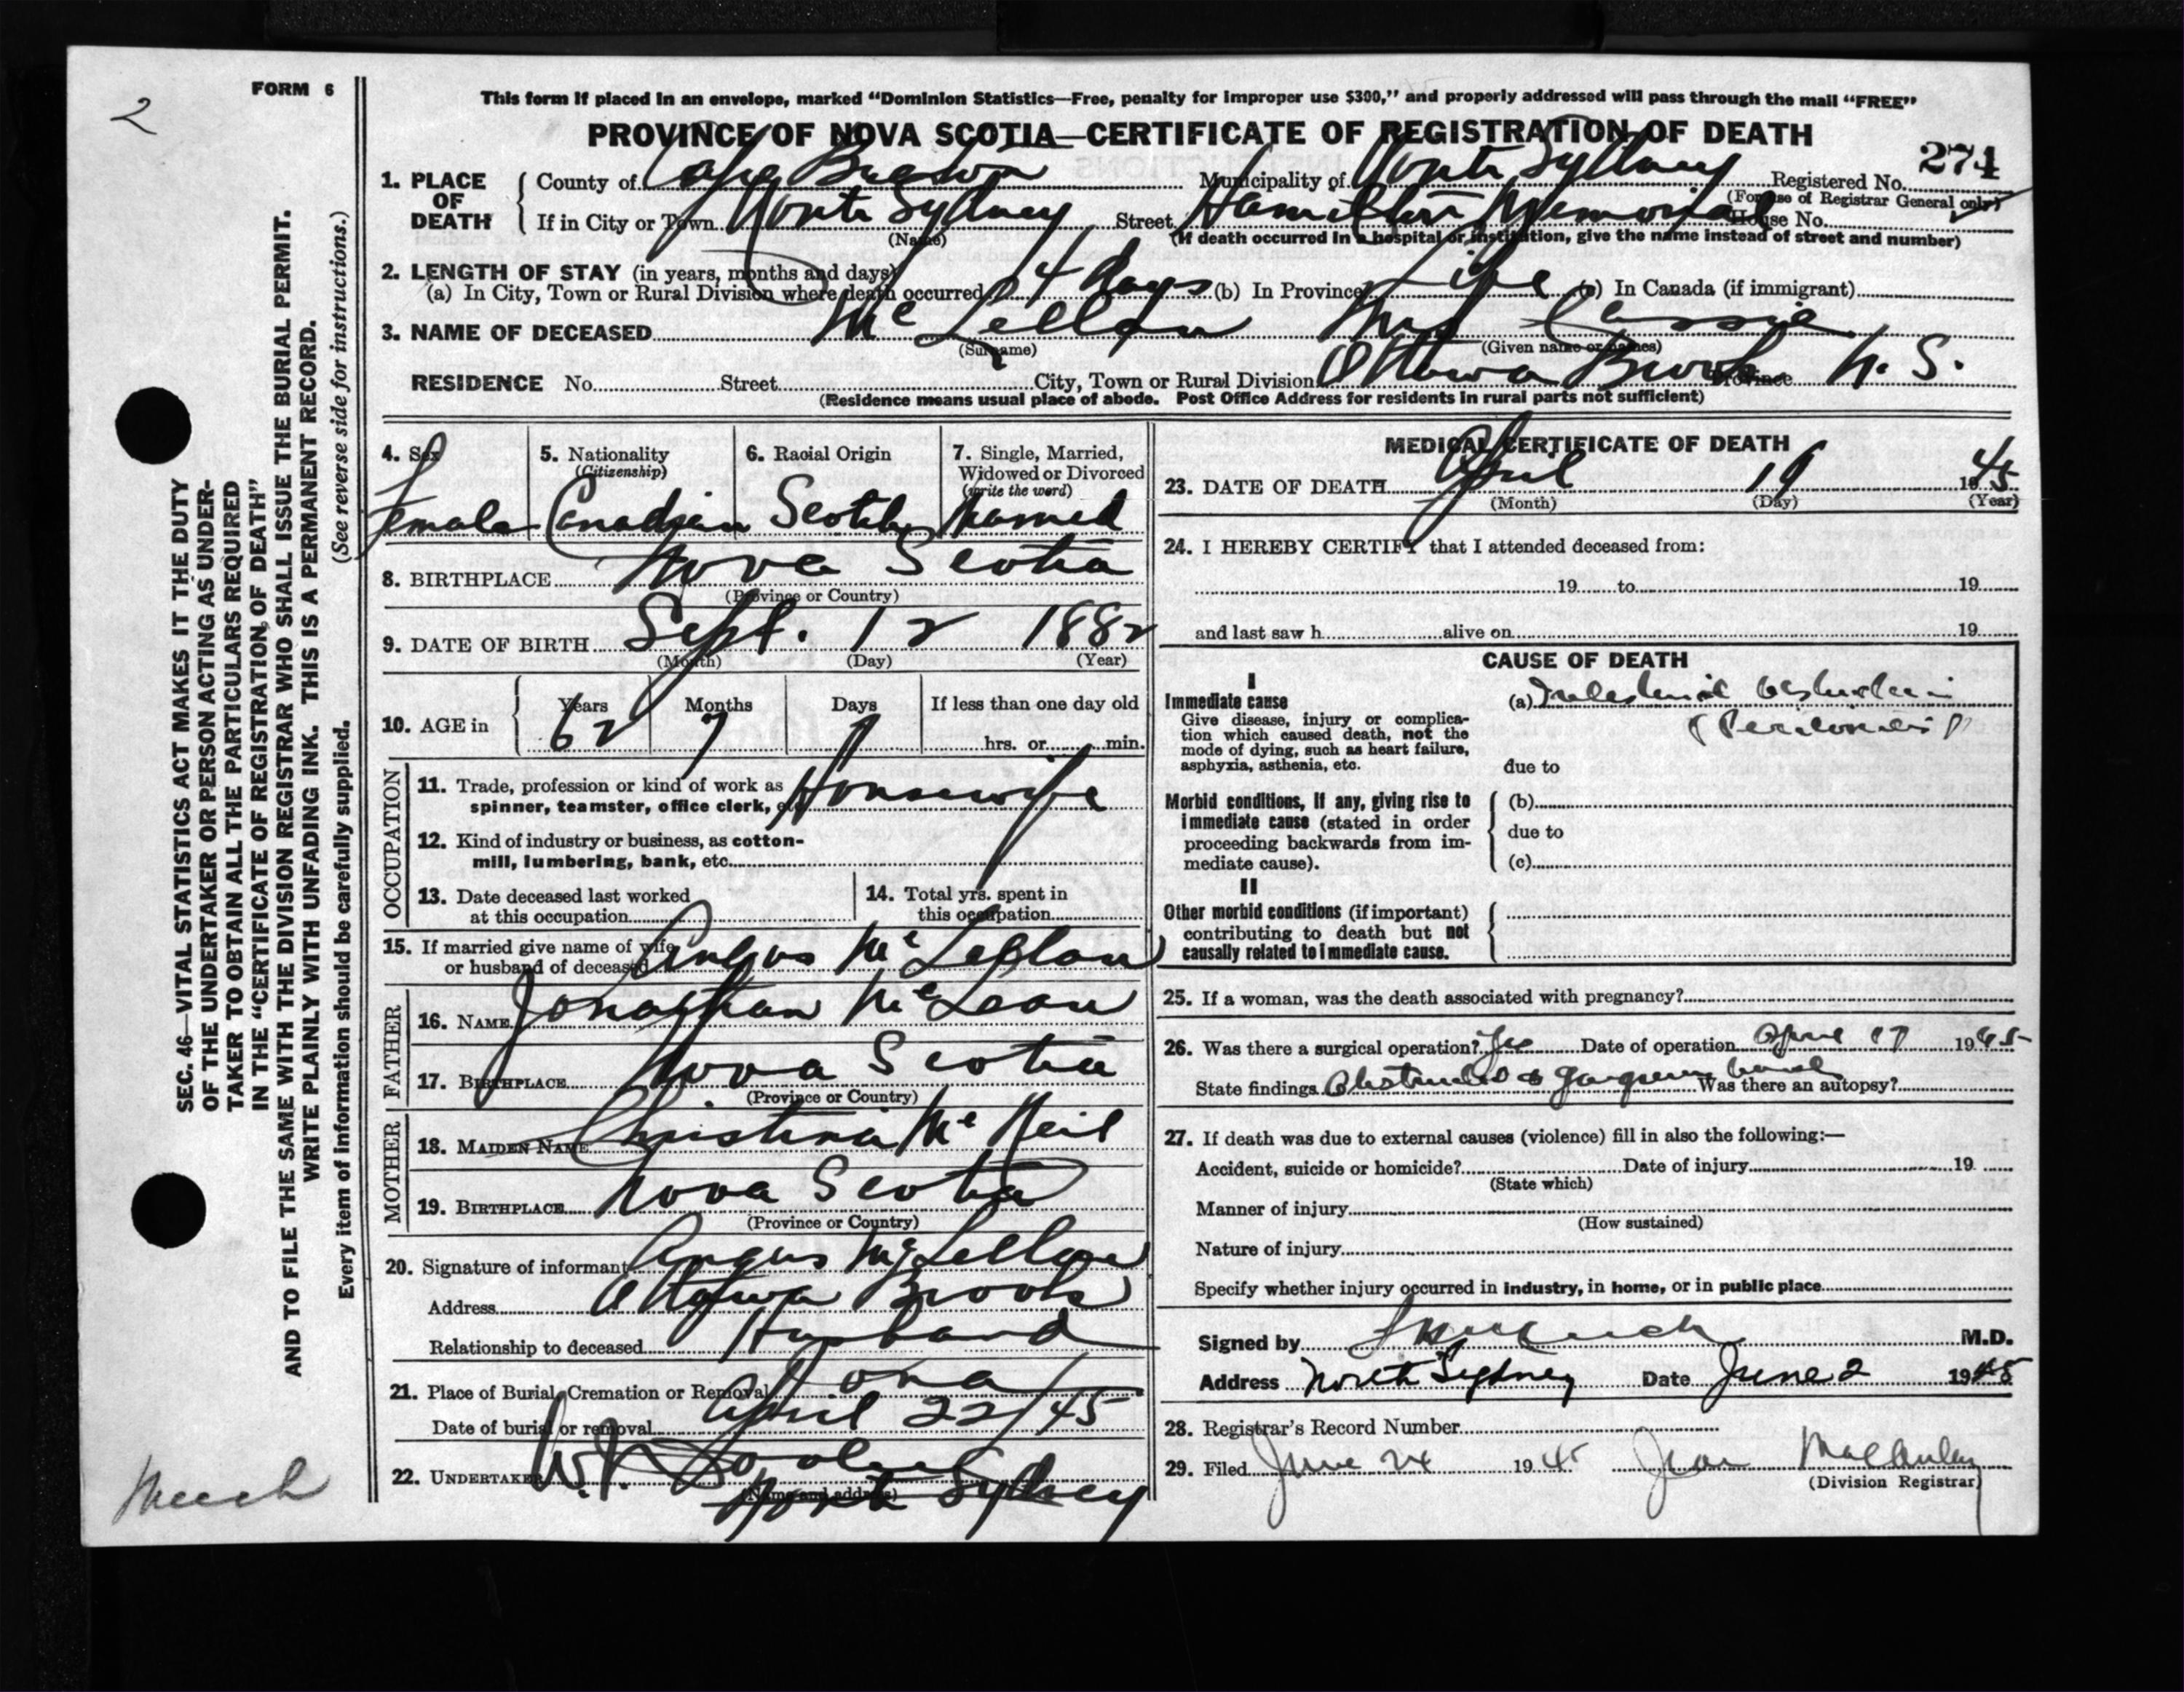 FORM 6
2
This form if placed in an envelope, marked "Dominion Statistics—Free, penalty for improper use $300," and properly addressed will pass through the mail "FREE"
PROVINCE OF NOVA SCOTIA—CERTIFICATE OF REGISTRATION OF DEATH
274
1. PLACE OF DEATH
County of Cape Breton Municipality of North Sydney Registered No.
(For use of Registrar General only)
If in City or Town North Sydney Street Hamilton Memorial House No.
(Name) (If death occurred in a hospital or institution, give the name instead of street and number)
2. LENGTH OF STAY (in years, months and days)
(a) In City, Town or Rural Division where death occurred 4 days (b) In Province Life (c) In Canada (if immigrant)
3. NAME OF DECEASED McLellan Mrs Cassie
(Surname) (Given name or names)
RESIDENCE No. Street City, Town or Rural Division Ottawa Brook Province N. S.
(Residence means usual place of abode. Post Office Address for residents in rural parts not sufficient)
4. Sex
Female
5. Nationality
(Citizenship)
Canadian
6. Racial Origin
Scotch
7. Single, Married,
Widowed or Divorced
(write the word)
Married
8. BIRTHPLACE Nova Scotia
(Province or Country)
9. DATE OF BIRTH Sept. 12 1882
(Month) (Day) (Year)
10. AGE in
Years Months Days If less than one day old
62 7 7 hrs. or min.
OCCUPATION
11. Trade, profession or kind of work as
spinner, teamster, office clerk, etc. Housewife
12. Kind of industry or business, as cotton-
mill, lumbering, bank, etc.
13. Date deceased last worked
at this occupation
14. Total yrs. spent in
this occupation
15. If married give name of wife
or husband of deceased Angus McLellan
FATHER
16. NAME Jonathan McLean
17. BIRTHPLACE Nova Scotia
(Province or Country)
MOTHER
18. MAIDEN NAME Christina McNeil
19. BIRTHPLACE Nova Scotia
(Province or Country)
20. Signature of informant Angus McLellan
Address Ottawa Brook
Relationship to deceased Husband
21. Place of Burial, Cremation or Removal Iona
Date of burial or removal April 22/45
22. UNDERTAKER W. J. Dooley
(Name and address)
North Sydney
MEDICAL CERTIFICATE OF DEATH
23. DATE OF DEATH April 19 1945
(Month) (Day) (Year)
24. I HEREBY CERTIFY that I attended deceased from:
19 to 19
and last saw h alive on 19
CAUSE OF DEATH
I
Immediate cause
Give disease, injury or complica-
tion which caused death, not the
mode of dying, such as heart failure,
asphyxia, asthenia, etc.
(a) Intestinal Obstruction
(Peritonitis)
due to
Morbid conditions, if any, giving rise to
immediate cause (stated in order
proceeding backwards from im-
mediate cause).
(b)
due to
(c)
II
Other morbid conditions (if important)
contributing to death but not
causally related to immediate cause.
25. If a woman, was the death associated with pregnancy?
26. Was there a surgical operation? Yes Date of operation April 17 1945
State findings Obstructed & gangrenous bowel Was there an autopsy?
27. If death was due to external causes (violence) fill in also the following:—
Accident, suicide or homicide? Date of injury 19
(State which)
Manner of injury
(How sustained)
Nature of injury
Specify whether injury occurred in industry, in home, or in public place
Signed by M.D.
Address North Sydney Date June 2 1945
28. Registrar's Record Number
29. Filed June 24 1945 Jean MacAulay
(Division Registrar)
SEC. 46—VITAL STATISTICS ACT MAKES IT THE DUTY
OF THE UNDERTAKER OR PERSON ACTING AS UNDER-
TAKER TO OBTAIN ALL THE PARTICULARS REQUIRED
IN THE "CERTIFICATE OF REGISTRATION OF DEATH"
AND TO FILE THE SAME WITH THE DIVISION REGISTRAR WHO SHALL ISSUE THE BURIAL PERMIT.
WRITE PLAINLY WITH UNFADING INK. THIS IS A PERMANENT RECORD.
Every item of information should be carefully supplied. (See reverse side for instructions.)
Meech